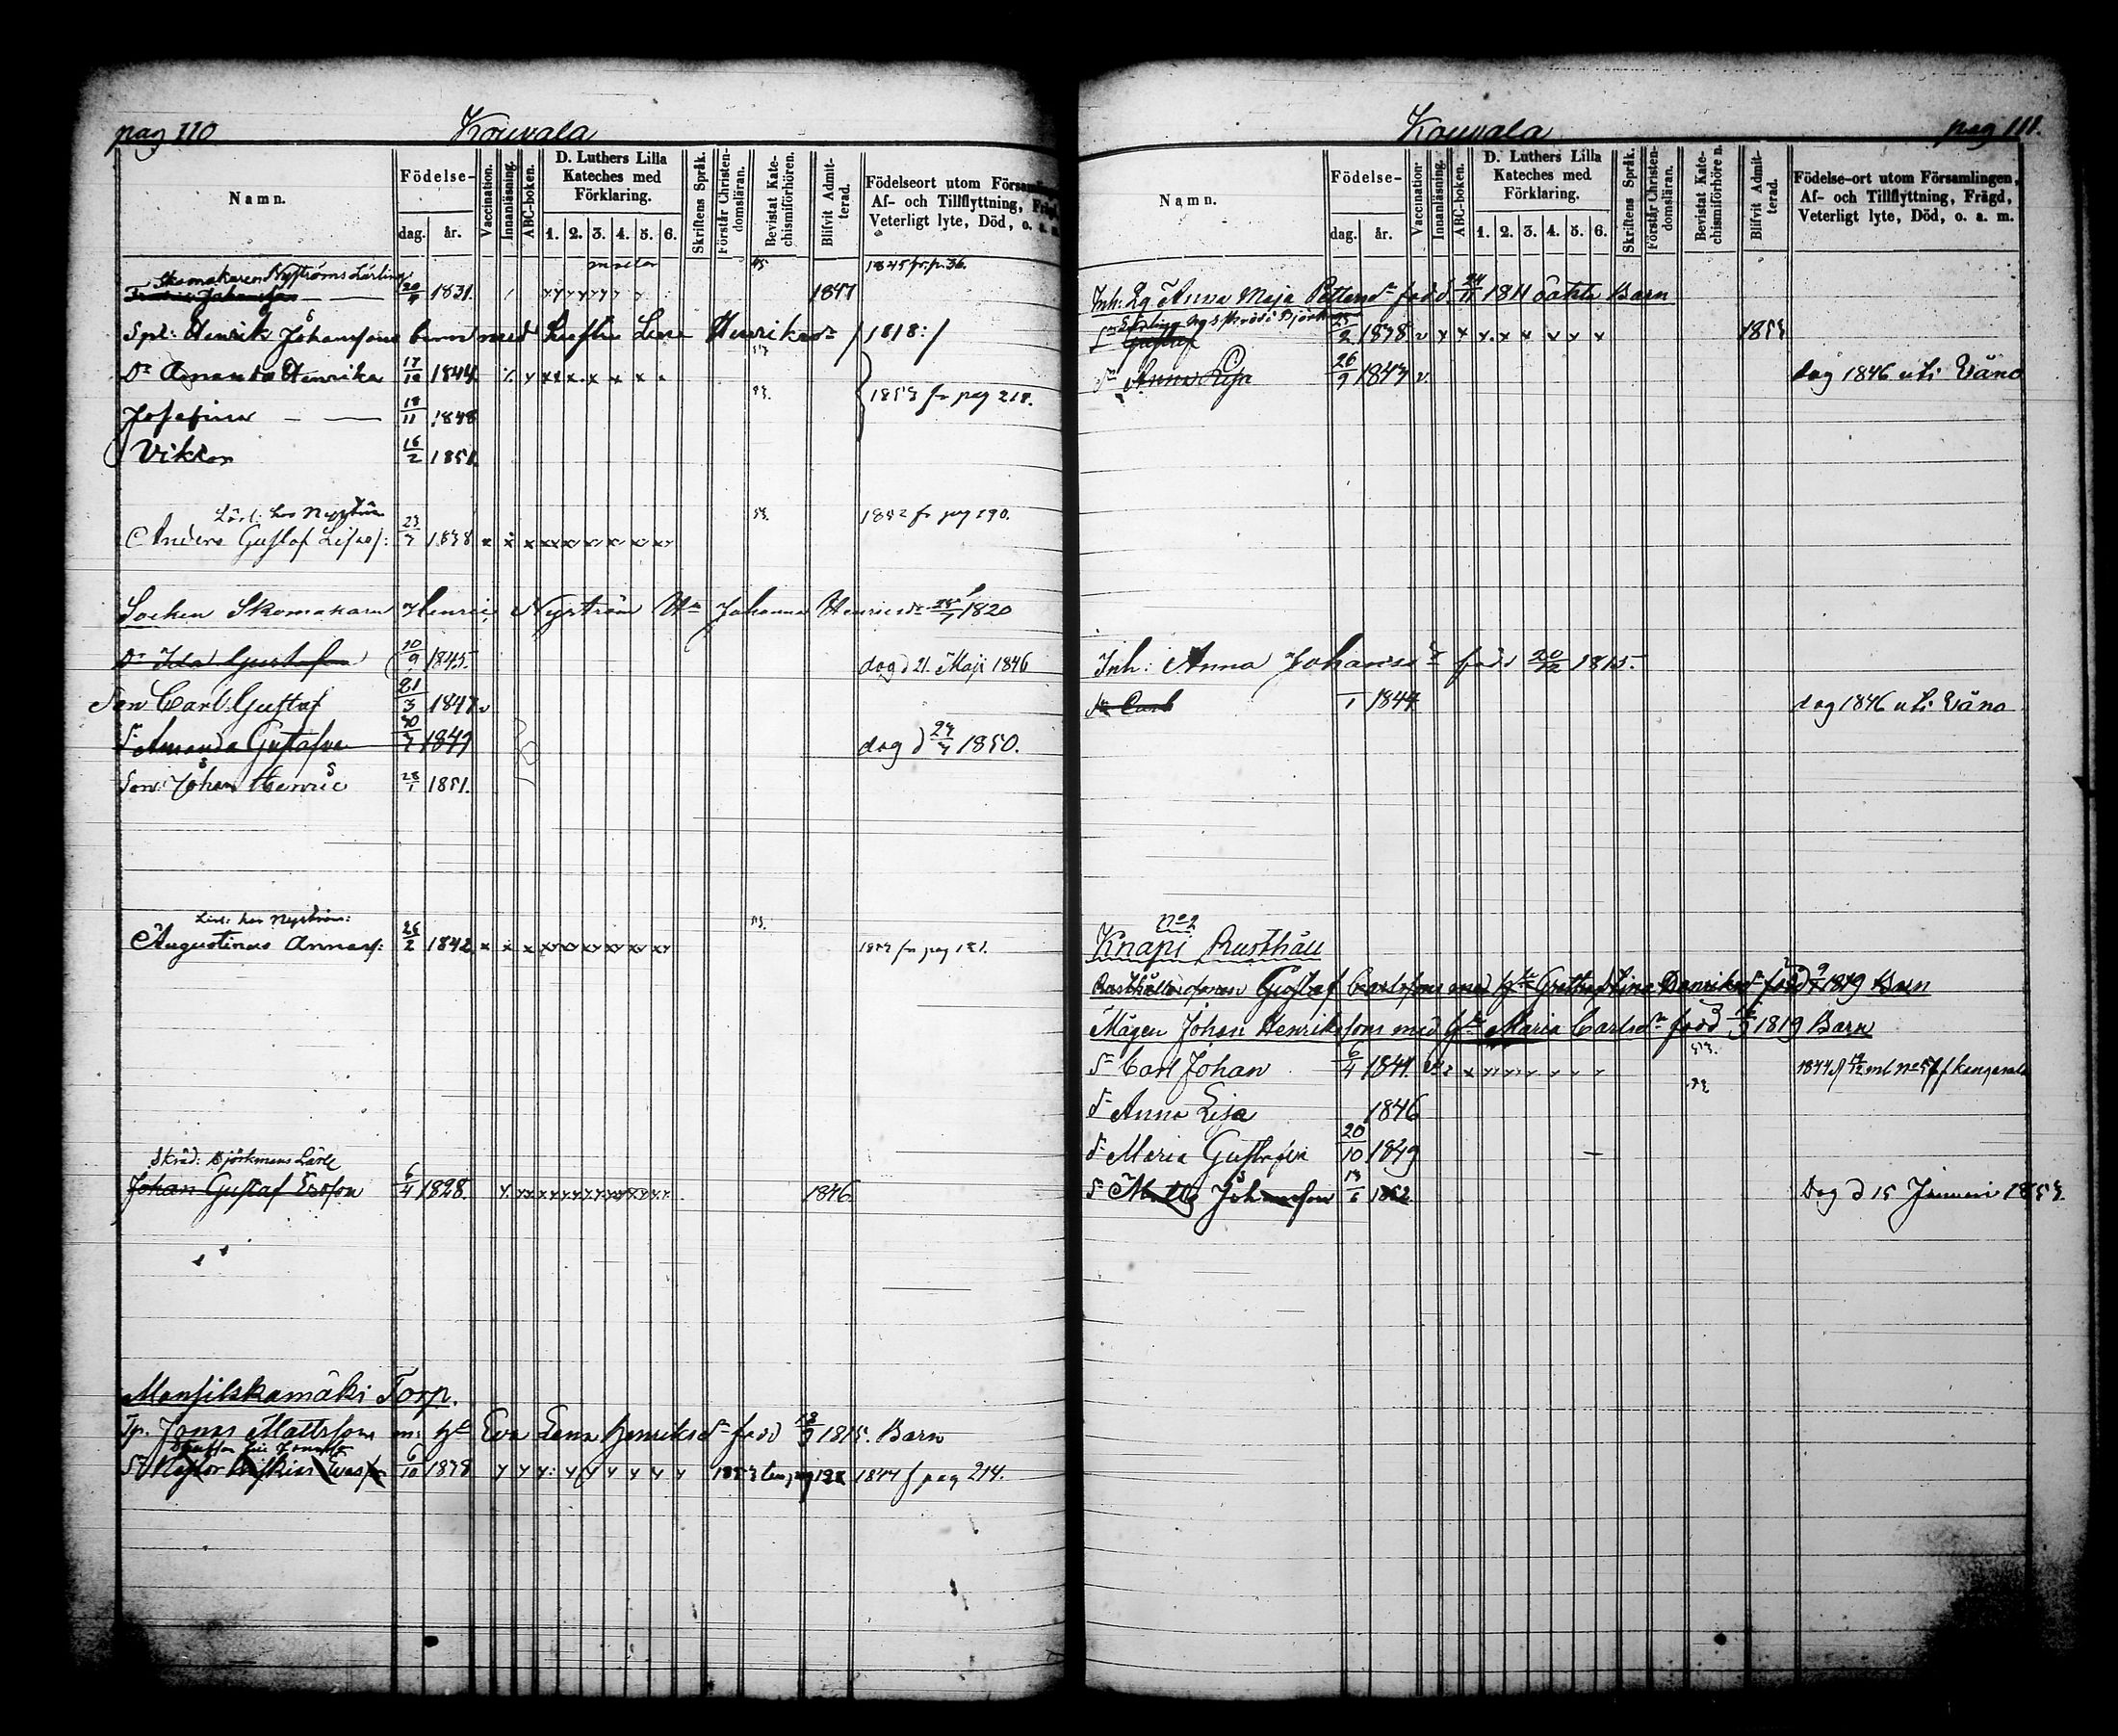 pag 110 Kouvala
Namn. Födelse- dag. år. Vaccination. Innanläsning. ABC-boken. D. Luthers Lilla Kateches med Förklaring. 1. 2. 3. 4. 5. 6. Skriftens Språk. Förstår Christendomsläran. Bevistat Katechismiförhören. Blifvit Admitterad. Födelseort utom Församlingen, Af- och Tillflyttning, Frägd, Veterligt lyte, Död, o. a. m.
Skomakaren Nyströms Lärling 45 1845 fr. p. 36.
Johansson 20/9 1831. 1847
Spl: Henrik Johanssons barn med Hustru Lisa Henriksdr / 1818: /
Dr Amanda Henrika 17/10 1844. 53
Josefina 18/11 1848 53. 1853 fr pag 218.
Viktor 16/2 1851.
Lärl: hos Nyström 53. 1852 fr pag 190.
Anders Gustaf Lisas: 23/7 1838 x x x x x x x x x
Socken Skomakaren Henric Nyström Hu Johanna Henricsdr 1820
Dr Ida Gustafva 10/9 1845. dog d 21. Maji 1846
Son Carl Gustaf 21/3 1847 v
Dr Amanda Gustafva 30/7 1849 dog d 29/7 1850.
Son Johan Henric 28/1 1851.
Lärl: hos Nyström: 53.
Augustinus Annas: 26/2 1842. x x x x x x x x x 1853 fr pag 121.
Skräd: Björkmans Lärl
Johan Gustaf Ersson 6/4 1828. 1846
Monsilskamäki Torp.
Tp. Jonas Mattsson m: Hu Eva Lena Henriksdr född 13/9 1815. Barn
6/10 1838 1853 1844 f pag 214.
Kouvala pag 111.
Namn. Födelse- dag. år. Vaccination. Innanläsning. ABC-boken. D. Luthers Lilla Kateches med Förklaring. 1. 2. 3. 4. 5. 6. Skriftens Språk. Förstår Christendomsläran. Bevistat Katechismiförhören. Blifvit Admitterad. Födelse-ort utom Församlingen, Af- och Tillflyttning, Frägd, Veterligt lyte, Död, o. a. m.
Inh: Eg Anna Maja Pettersdr född 24/11 1811 oäkta Barn
Gustaf 25/2 1838 v x x x x x x x x 1853
Dr Anna Lisa 26/9 1843 v. dog 1846 uti Wånå
Inh: Anna Johansdr född 20/12 1815.
Sn Carl 1 1844 dog 1846 uti Wånå
No 2
Knapi Rusthåll
Rusthållaresonen Gustaf Carlssons med Hu Gretha Stina Henriksdr född 1819 Barn
Mågen Johan Henrikssons med Hu Maria Carlsdr född 1819 Barn
S Carl Johan 6/4 1841. 53.
D Anna Lisa 1846 53
D Maria Gustafva 20/10 1849
S Matts Johansson 1852 Dog d 15 Januari 1853.